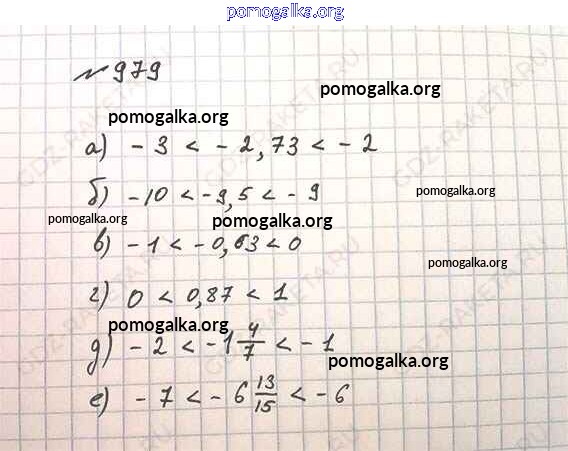 pomogalka.org
№ 979
pomogalka.org
pomogalka.org
а) - 3 < - 2,73 < - 2
б) - 10 < - 9,5 < - 9
pomogalka.org
pomogalka.org
pomogalka.org
в) - 1 < - 0,63 < 0
pomogalka.org
г) 0 < 0,87 < 1
pomogalka.org
д) - 2 < - 1 4/7 < - 1
pomogalka.org
е) - 7 < - 6 13/15 < - 6
GDZ-RAKETA.RU
GDZ-RAKETA.RU
GDZ-RAKETA.RU